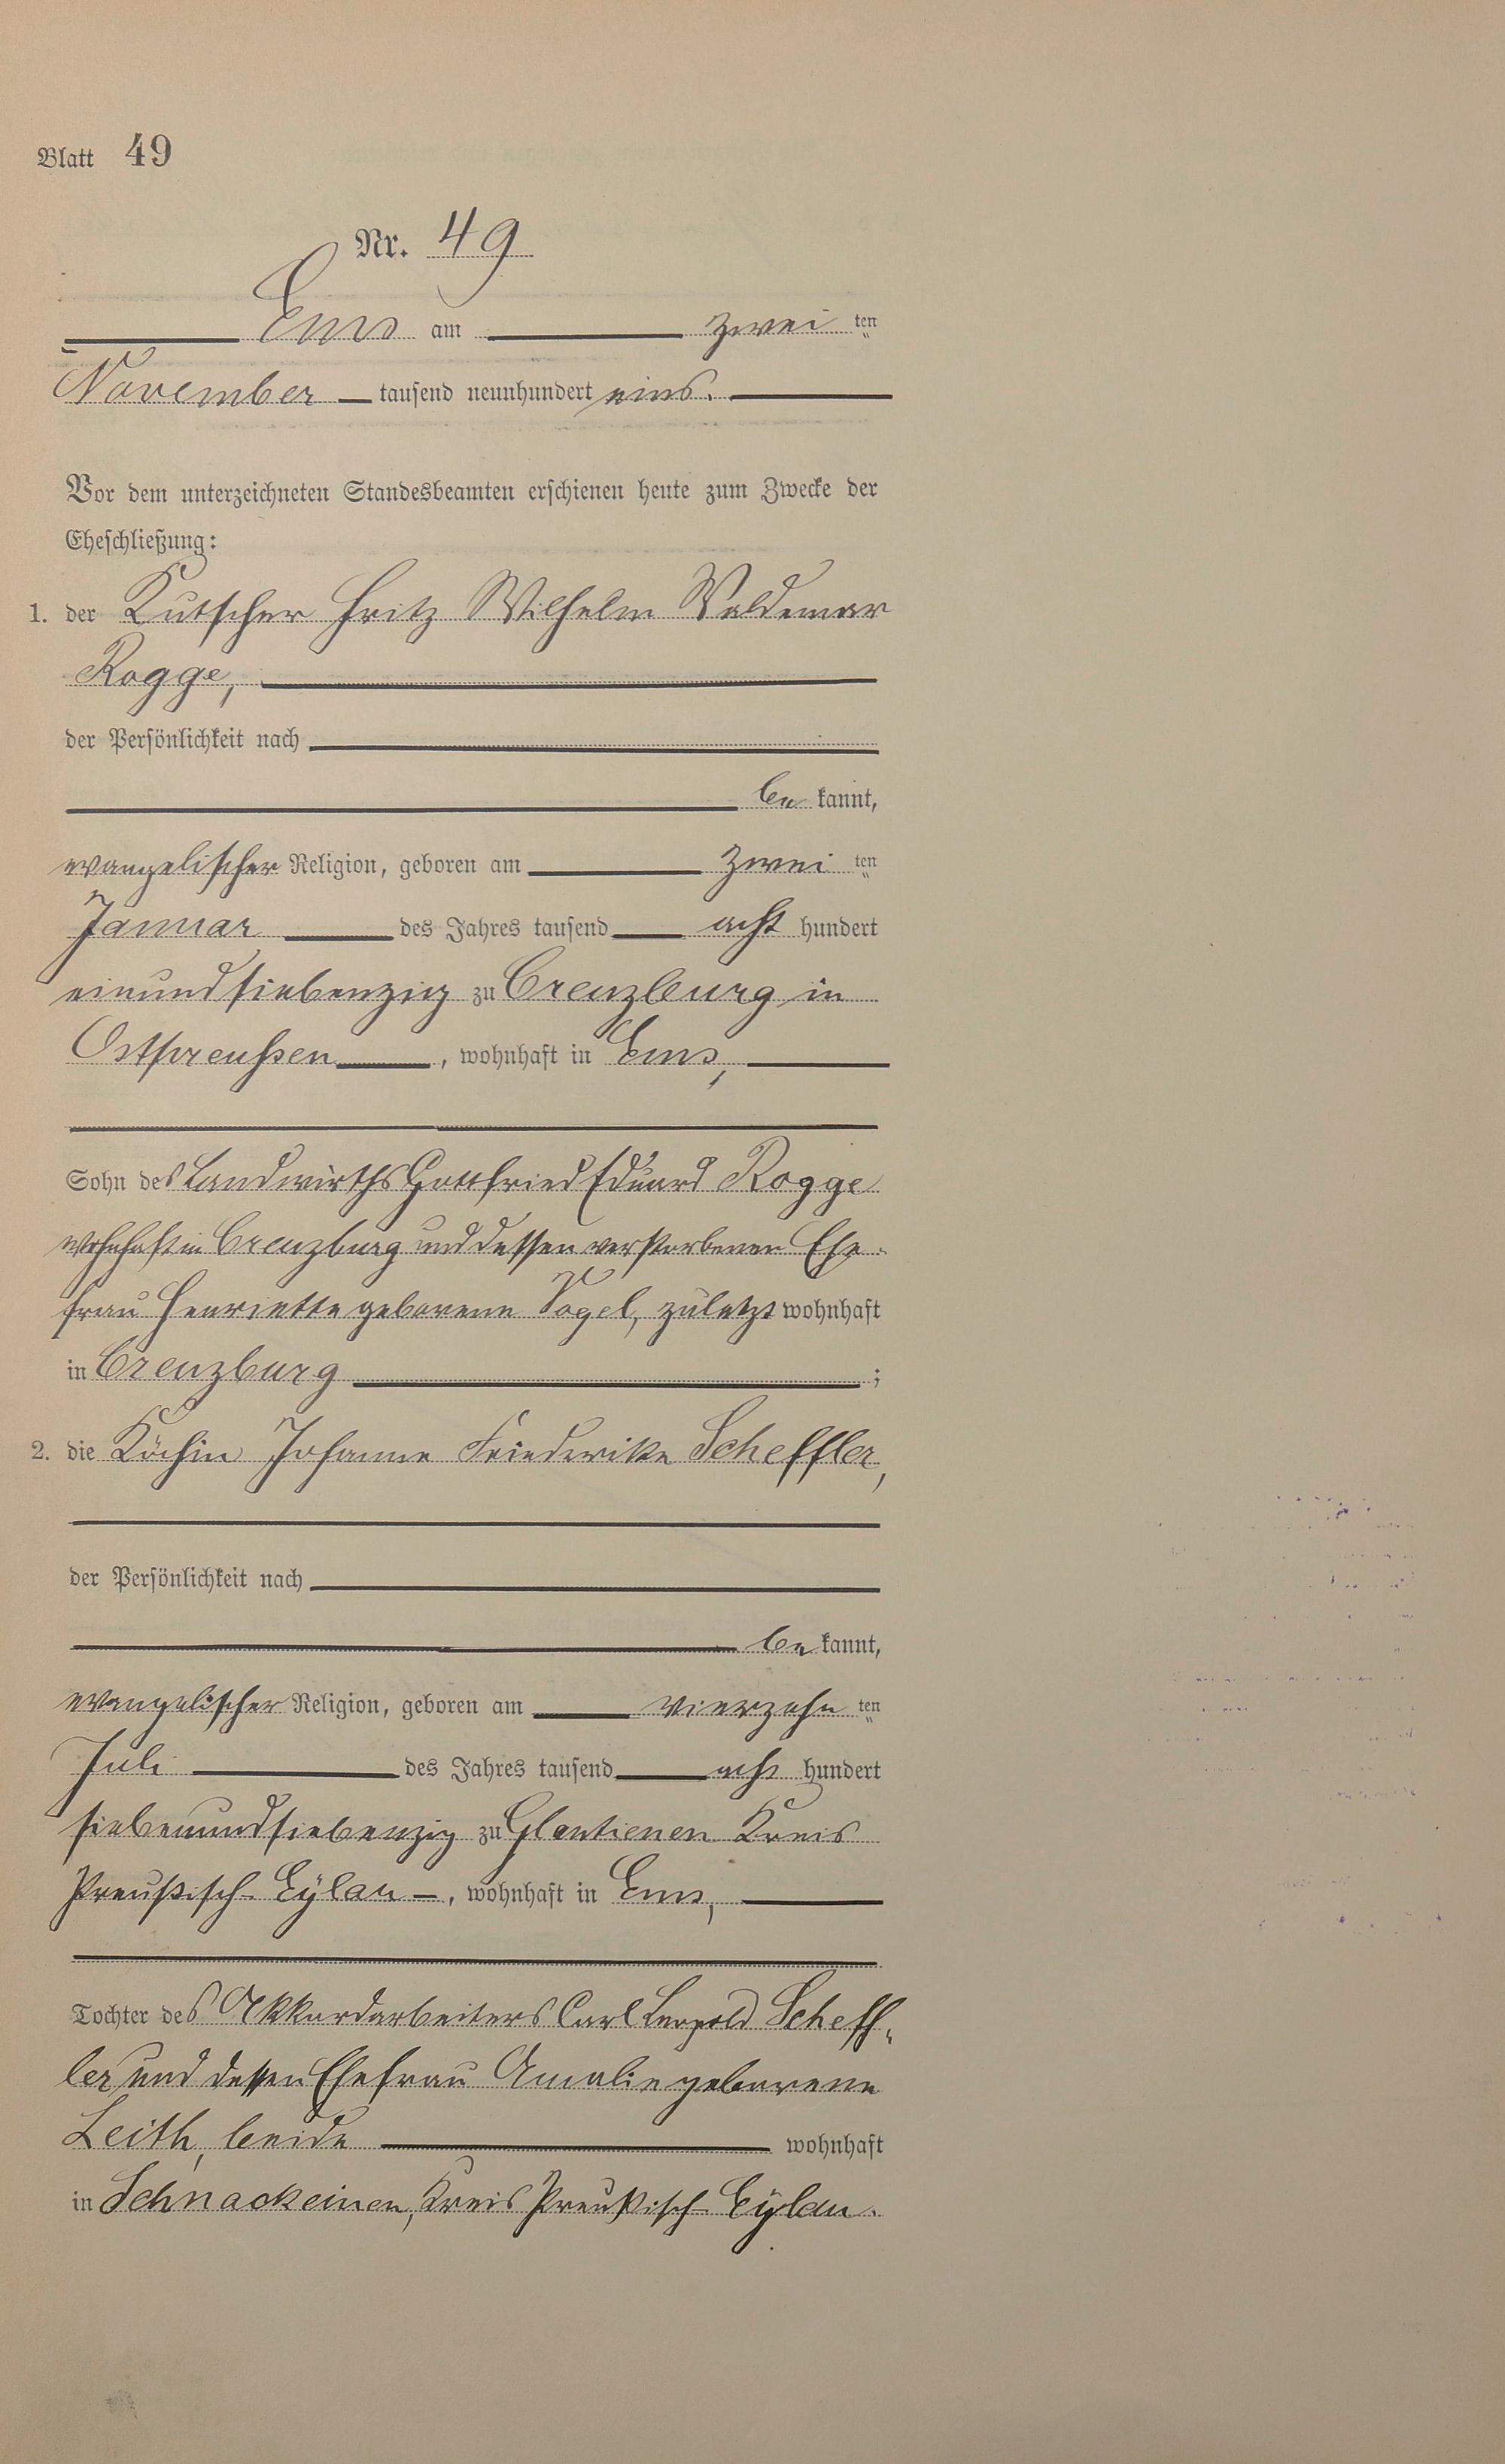 Blatt 49
Nr. 49
Ems am zwei ten
November tausend neunhundert eins.
Vor dem unterzeichneten Standesbeamten erschienen heute zum Zwecke der
Eheschließung:
1. der Kutscher Fritz Wilhelm Waldemar
Rogge,
der Persönlichkeit nach
be kannt,
evangelischer Religion, geboren am zwei ten
Januar des Jahres tausend acht hundert
einundsiebenzig zu Creuzburg in
Ostpreußen, wohnhaft in Ems,
Sohn des Landwirths Gottfried Eduard Rogge
wohnhaft in Creuzburg und dessen verstorbenen Ehe-
frau Henriette geborene Vogel, zuletzt wohnhaft
in Creuzburg ;
2. die Köchin Johanne Friederike Scheffler,
der Persönlichkeit nach
be kannt,
evangelischer Religion, geboren am vierzehn ten
Juli des Jahres tausend acht hundert
siebenundsiebenzig zu Glantienen Kreis
Preußisch-Eylau –, wohnhaft in Ems,
Tochter des Akkordarbeiters Carl Leopold Scheff-
ler und dessen Ehefrau Amalie geborene
Leith, beide wohnhaft
in Schnackeinen, Kreis Preußisch-Eylau.